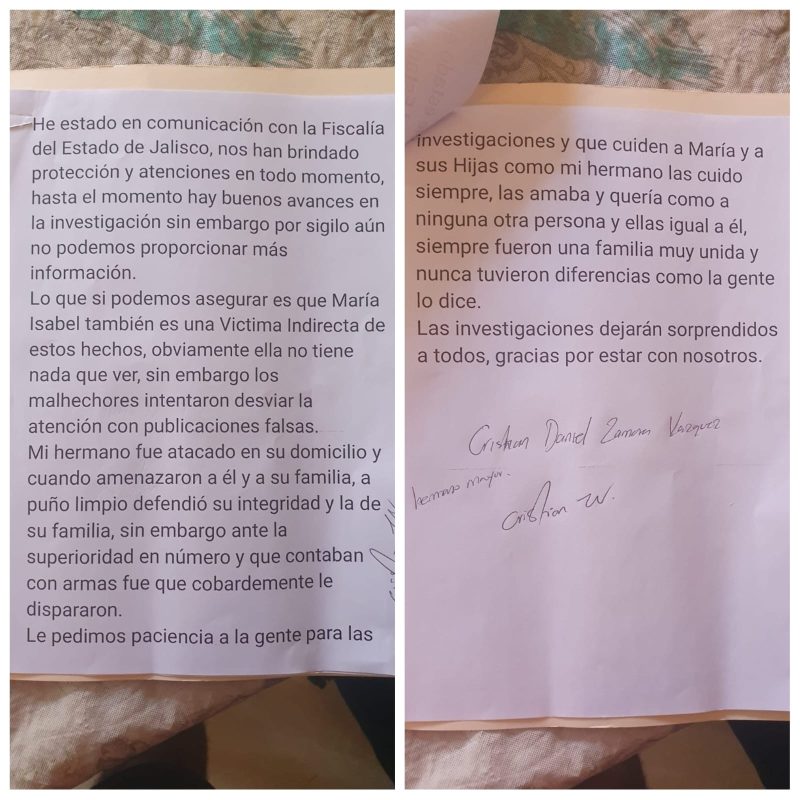 He estado en comunicación con la Fiscalía
del Estado de Jalisco, nos han brindado
protección y atenciones en todo momento,
hasta el momento hay buenos avances en
la investigación sin embargo por sigilo aún
no podemos proporcionar más
información.
Lo que si podemos asegurar es que María
Isabel también es una Victima Indirecta de
estos hechos, obviamente ella no tiene
nada que ver, sin embargo los
malhechores intentaron desviar la
atención con publicaciones falsas.
Mi hermano fue atacado en su domicilio y
cuando amenazaron a él y a su familia, a
puño limpio defendió su integridad y la de
su familia, sin embargo ante la
superioridad en número y que contaban
con armas fue que cobardemente le
dispararon.
Le pedimos paciencia a la gente para las
investigaciones y que cuiden a María y a
sus Hijas como mi hermano las cuido
siempre, las amaba y quería como a
ninguna otra persona y ellas igual a él,
siempre fueron una familia muy unida y
nunca tuvieron diferencias como la gente
lo dice.
Las investigaciones dejarán sorprendidos
a todos, gracias por estar con nosotros.
Cristian Daniel Zamora Vazquez
hermano mayor.
Cristian